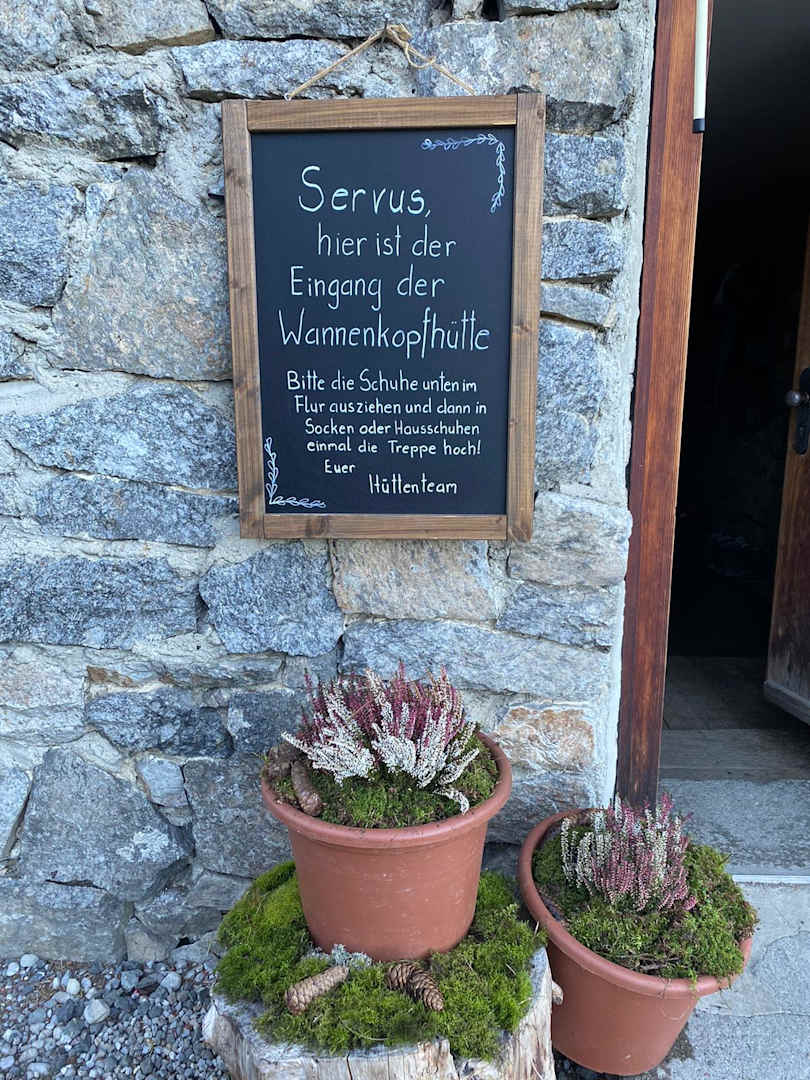 Servus,
hier ist der
Eingang der
Wannenkopfhütte
Bitte die Schuhe unten im
Flur ausziehen und dann in
Socken oder Hausschuhen
einmal die Treppe hoch!
Euer
Hüttenteam